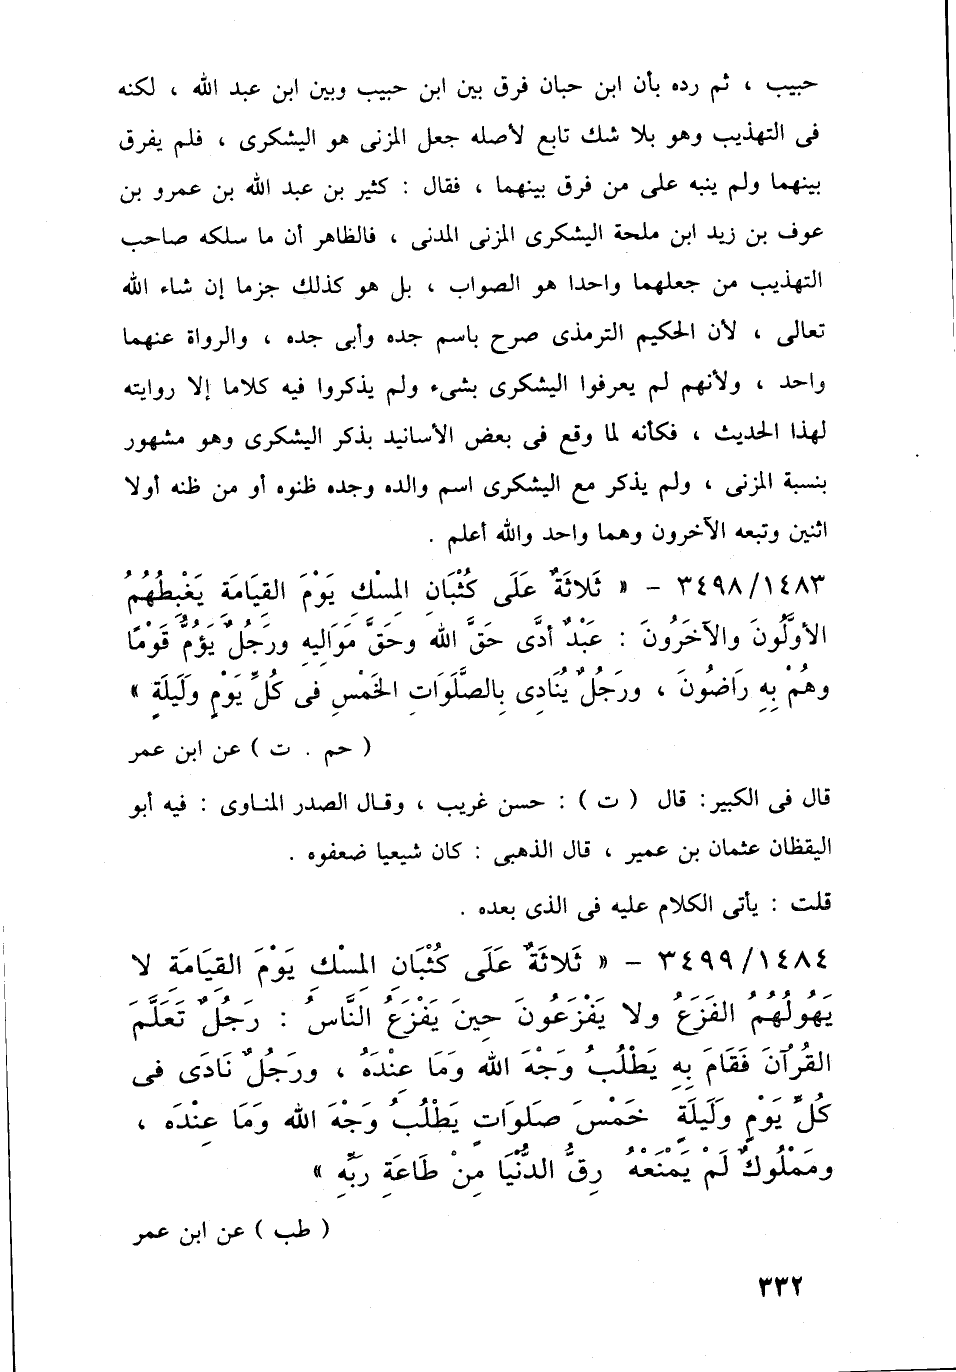 حبيب ، ثم رده بأن ابن حبان فرق بين ابن حبيب وبين ابن عبد الله ، لكنه
فى التهذيب وهو بلا شك تابع لأصله جعل المزنى هو اليشكرى ، فلم يفرق
بينهما ولم ينبه على من فرق بينهما ، فقال : كثير بن عبد الله بن عمرو بن
عوف بن زيد ابن ملحة اليشكرى المزنى المدنى ، فالظاهر أن ما سلكه صاحب
التهذيب من جعلهما واحدا هو الصواب ، بل هو كذلك جزما إن شاء الله
تعالى ، لأن الحكيم الترمذى صرح باسم جده وأبى جده ، والرواة عنهما
واحد ، ولأنهم لم يعرفوا اليشكرى بشىء ولم يذكروا فيه كلاما إلا روايته
لهذا الحديث ، فكأنه لما وقع فى بعض الأسانيد بذكر اليشكرى وهو مشهور
بنسبة المزنى ، ولم يذكر مع اليشكرى اسم والده وجده ظنوه أو من ظنه أولا
اثنين وتبعه الآخرون وهما واحد والله أعلم .
٣٤٩٨/١٤٨٣ – « ثَلاثَةٌ عَلَى كُثْبَانِ المِسْكِ يَوْمَ القِيَامَةِ يَغْبِطُهُمُ
الأَوَّلُونَ والآخَرُونَ : عَبْدٌ أدَّى حَقَّ الله وحَقَّ مَوَالِيهِ ورَجُلٌ يَؤُمُّ قَوْمًا
وهُمْ بِهِ رَاضُونَ ، ورَجُلٌ يُنَادِى بِالصَّلَوَاتِ الخَمْسِ فِى كُلِّ يَوْمٍ ولَيلَةٍ »
( حم . ت ) عن ابن عمر
قال فى الكبير: قال ( ت ) : حسن غريب ، وقال الصدر المناوى : فيه أبو
اليقظان عثمان بن عمير ، قال الذهبى : كان شيعيا ضعفوه .
قلت : يأتى الكلام عليه فى الذى بعده .
٣٤٩٩/١٤٨٤ – « ثَلاثَةٌ عَلَى كُثْبَانِ المِسْكِ يَوْمَ القِيَامَةِ لا
يَهُولُهُمُ الفَزَعُ ولا يَفْزَعُونَ حِينَ يَفْزَعُ النَّاسُ : رَجُلٌ تَعَلَّمَ
القُرْآنَ فَقَامَ بِهِ يَطْلُبُ وَجْهَ الله وَمَا عِنْدَهُ ، ورَجُلٌ نَادَى فى
كُلِّ يَوْمٍ وَلَيلَةٍ خَمْسَ صَلَوَاتٍ يَطْلُبُ وَجْهَ الله وَمَا عِنْدَه ،
ومَمْلُوكٌ لَمْ يَمْنَعْهُ رِقُّ الدُّنْيَا مِنْ طَاعَةِ رَبِّهِ »
( طب ) عن ابن عمر
٣٣٢